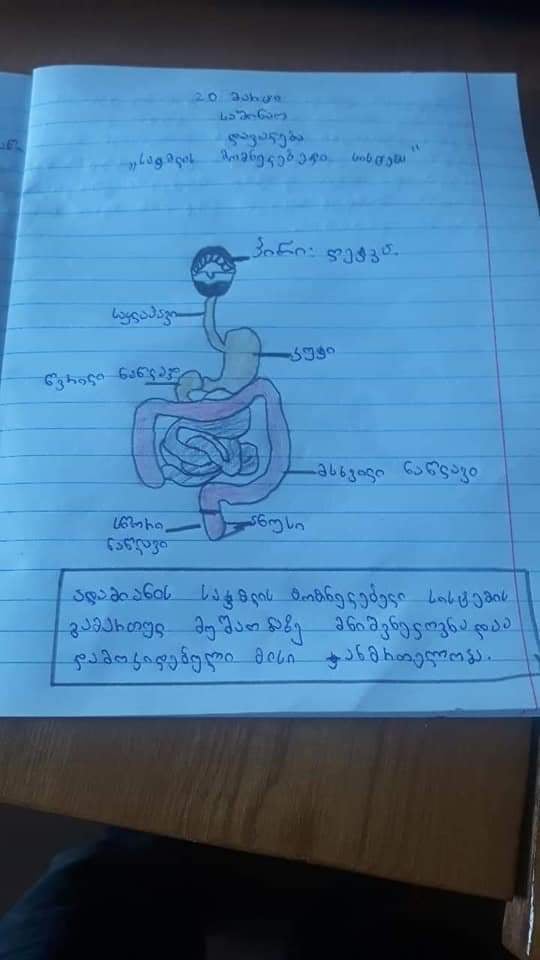 20 მარტი
საშინაო
დავალება
„საჭმლის მომნელებელი სისტემა"
პირი: ღეჭვა.
საყლაპავი
კუჭი
წვრილი ნაწლავი
მსხვილი ნაწლავი
სწორი
ნაწლავი
ანუსი
ადამიანის საჭმლის მომნელებელი სისტემის
გამართულ მუშაობაზე მნიშვნელოვნადაა
დამოკიდებული მისი ჯანმრთელობა.